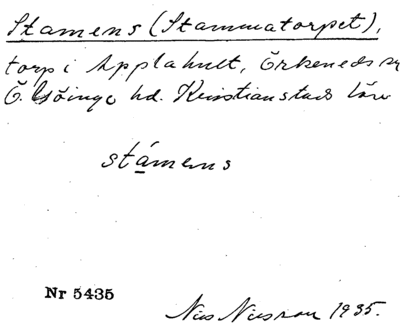 Stamens (Stammatorpet),
torp i Applahult, Örkeneds sn
Ö. Göinge hd. Kristianstads län
stámens
Nr 5435
Nils Nilsson 1935.